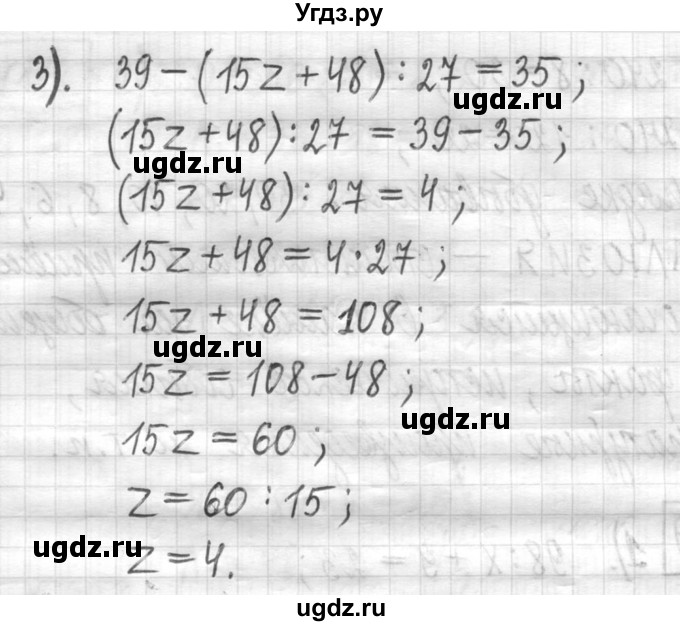 Угдз.ру
3). 39 − (15z + 48) : 27 = 35 ;
ugdz.ru
(15z + 48) : 27 = 39 − 35 ;
ugdz.ru
(15z + 48) : 27 = 4 ;
15z + 48 = 4 · 27 ;
15z + 48 = 108 ;
ugdz.ru
15z = 108 − 48 ;
ugdz.ru
15z = 60 ;
z = 60 : 15 ;
ugdz.ru
z = 4.
ugdz.ru
ugdz.ru